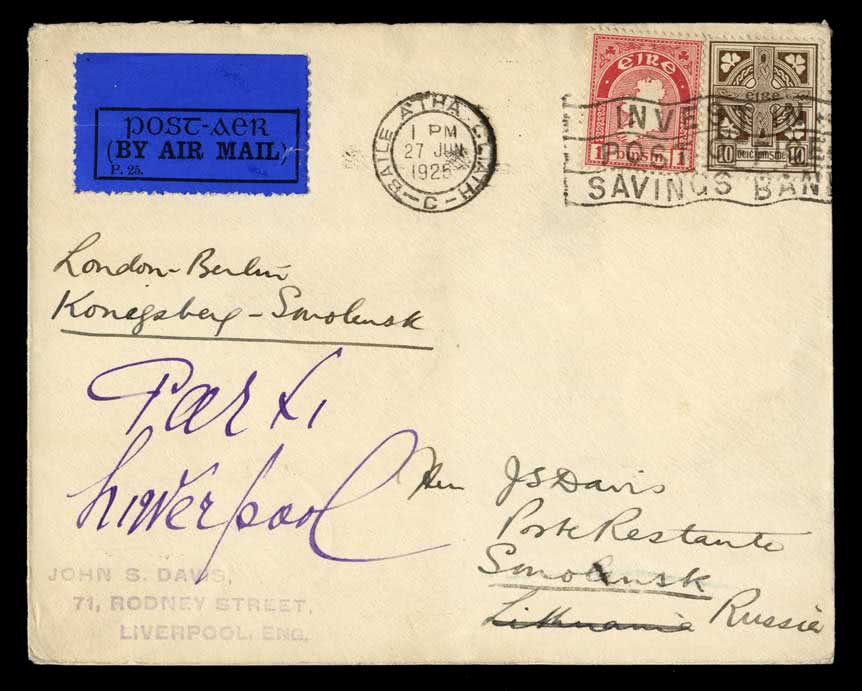 POST-AER
(BY AIR MAIL)
P. 25.
BAILE ÁTHA CLIATH
1 PM
27 JUN
1925
-C-
ÉIRE
1 1
ÉIRE
10 10
INVEST IN
POST
SAVINGS BANK
London-Berlin
Konigsberg - Smolensk
Liverpool
Herr J S Davis
Poste Restante
Smolensk
Lithuania Russia
JOHN S. DAVIS,
71, RODNEY STREET,
LIVERPOOL, ENG.